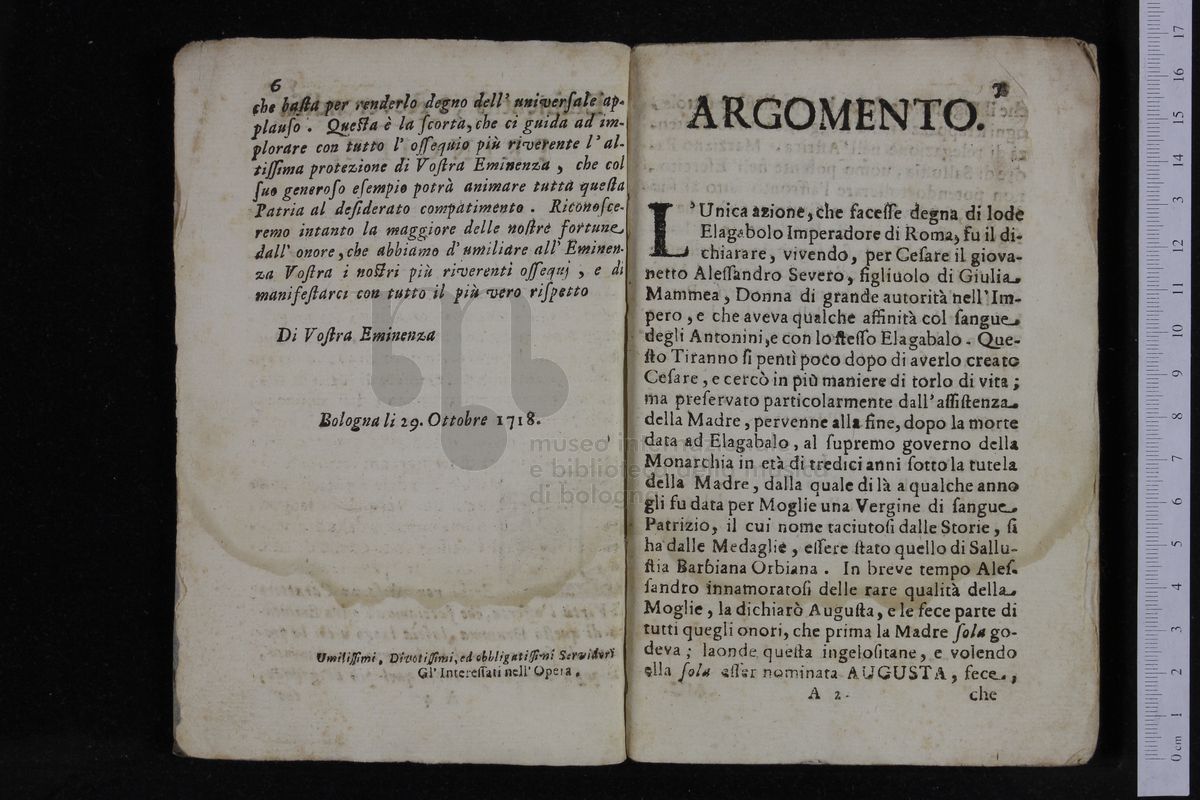 6
che baſta per renderlo degno dell' univerſale ap-
plauſo . Queſta è la ſcorta, che ci guida ad im-
plorare con tutto l' oſſequio più riverente l' al-
tiſſima protezione di Voſtra Eminenza , che col
ſuo generoſo eſempio potrà animare tutta queſta
Patria al deſiderato compatimento . Riconoſce-
remo intanto la maggiore delle noſtre fortune
dall' onore, che abbiamo d' umiliare all' Eminen-
za Voſtra i noſtri più riverenti oſſequj , e di
manifeſtarci con tutto il più vero riſpetto
Di Voſtra Eminenza
Bologna li 29. Ottobre 1718.
Umiliſſimi, Divotiſſimi, ed obbligatiſſimi Servidori
Gl' Intereſſati nell' Opera .
7
ARGOMENTO.
L'Unica azione, che faceſſe degna di lode
Elagabolo Imperadore di Roma, fu il di-
chiarare, vivendo, per Ceſare il giova-
netto Aleſſandro Severo, figliuolo di Giulia
Mammea, Donna di grande autorità nell' Im-
pero, e che aveva qualche affinità col ſangue
degli Antonini, e con lo ſteſſo Elagabalo. Que-
ſto Tiranno ſi pentì poco dopo di averlo creato
Ceſare, e cercò in più maniere di torlo di vita;
ma preſervato particolarmente dall' aſſiſtenza
della Madre, pervenne alla fine, dopo la morte
data ad Elagabalo, al ſupremo governo della
Monarchia in età di tredici anni ſotto la tutela
della Madre, dalla quale di là a qualche anno
gli fu data per Moglie una Vergine di ſangue
Patrizio, il cui nome taciutoſi dalle Storie, ſi
ha dalle Medaglie, eſſere ſtato quello di Sallu-
ſtia Barbiana Orbiana. In breve tempo Aleſ-
ſandro innamoratoſi delle rare qualità della
Moglie, la dichiarò Auguſta, e le fece parte di
tutti quegli onori, che prima la Madre ſola go-
deva; laonde queſta ingeloſitane, e volendo
ella ſola eſſer nominata AUGUSTA, fece,
A 2.
che
museo internazionale
e biblioteca della musica
di bologna
0 cm 1 2 3 4 5 6 7 8 9 10 11 12 13 14 15 16 17